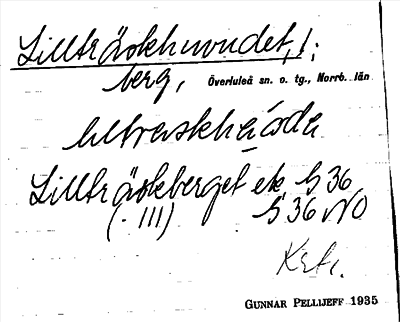 Lillträskhuvudet, l;
berg, Överluleå sn. o. tg., Norrb. län
Lillträskberget ek S 36
(- III) S 36 NO
Krti.
GUNNAR PELLIJEFF 1935